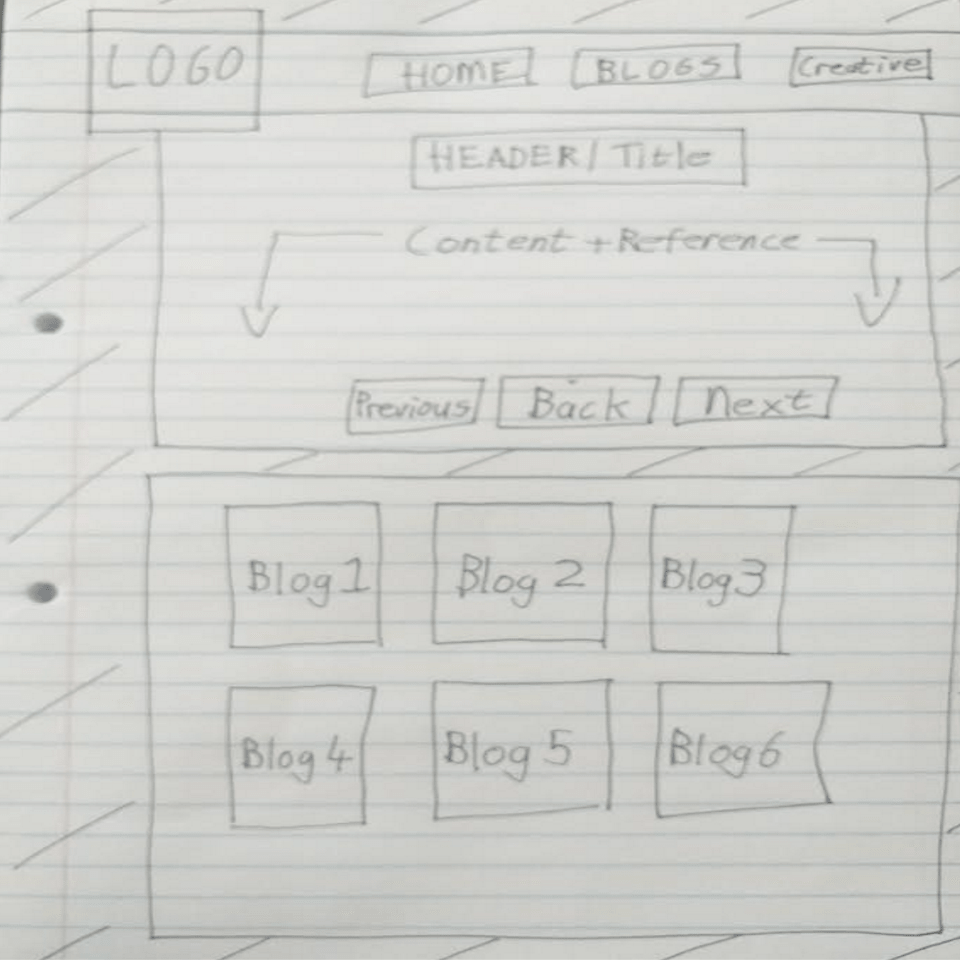 LOGO HOME BLOGS Creative
HEADER/Title
Content + Reference
Previous Back Next
Blog 1 Blog 2 Blog 3
Blog 4 Blog 5 Blog 6